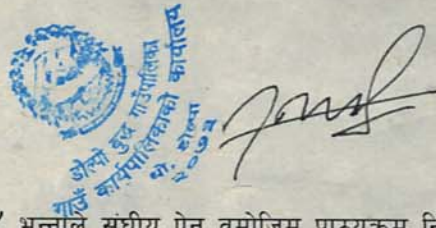 डोल्पो बुद्ध गाउँपालिका
गाउँ कार्यपालिकाको कार्यालय
धो, डोल्पा
२०७३
भन्नाले संघीय ऐन बमोजिम पाठ्यक्रम